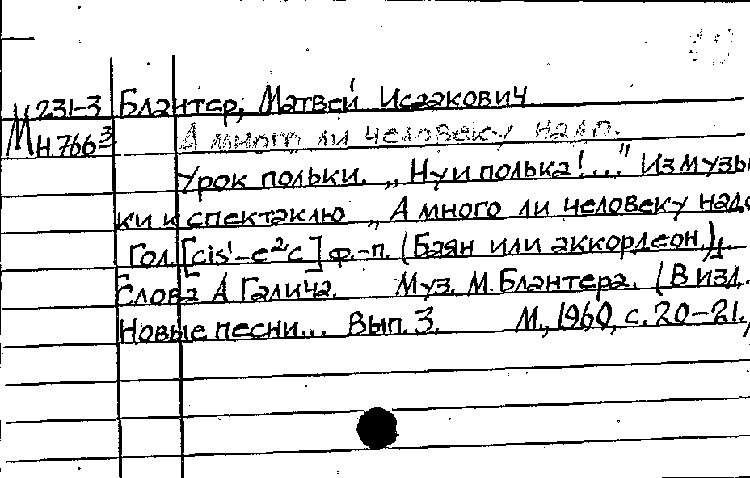 М 231-3 Блантер, Матвей Исаакович
Н.766³ А много ли человеку надо.
Урок польки. „Ну и полька!..." Из музы-
ки к спектаклю „А много ли человеку надо
Гол. [cis¹-e²] ф.-п. (Баян или аккордеон.)
Слова А Галича. Муз. М. Блантера. (В изд.
Новые песни... Вып. 3. М., 1960, с. 20-21.